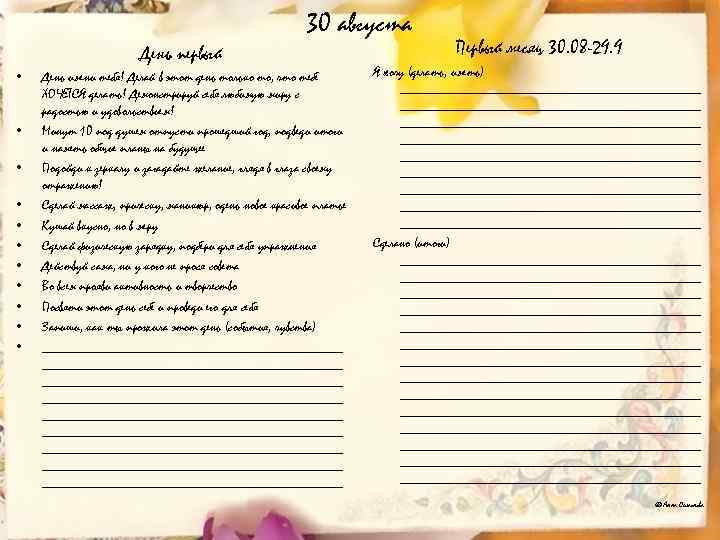 30 августа
День первый
• День имени тебя! Делай в этот день только то, что тебе
ХОЧЕТСЯ делать! Демонстрируй себя любимую миру с
радостью и удовольствием!
• Минут 10 под душем отпусти прошедший год, подведи итоги
и наметь общие планы на будущее
• Подойди к зеркалу и загадайте желание, глядя в глаза своему
отражению!
• Сделай массаж, прическу, маникюр, одень новое красивое платье
• Кушай вкусно, но в меру
• Сделай физическую зарядку, подбери для себя упражнения
• Действуй сама, ни у кого не прося совета
• Во всем прояви активность и творчество
• Посвяти этот день себе и проведи его для себя
• Запиши, как ты прожила этот день (события, чувства)
Первый месяц 30.08-29.9
Я хочу (делать, иметь)
Сделано (итоги)